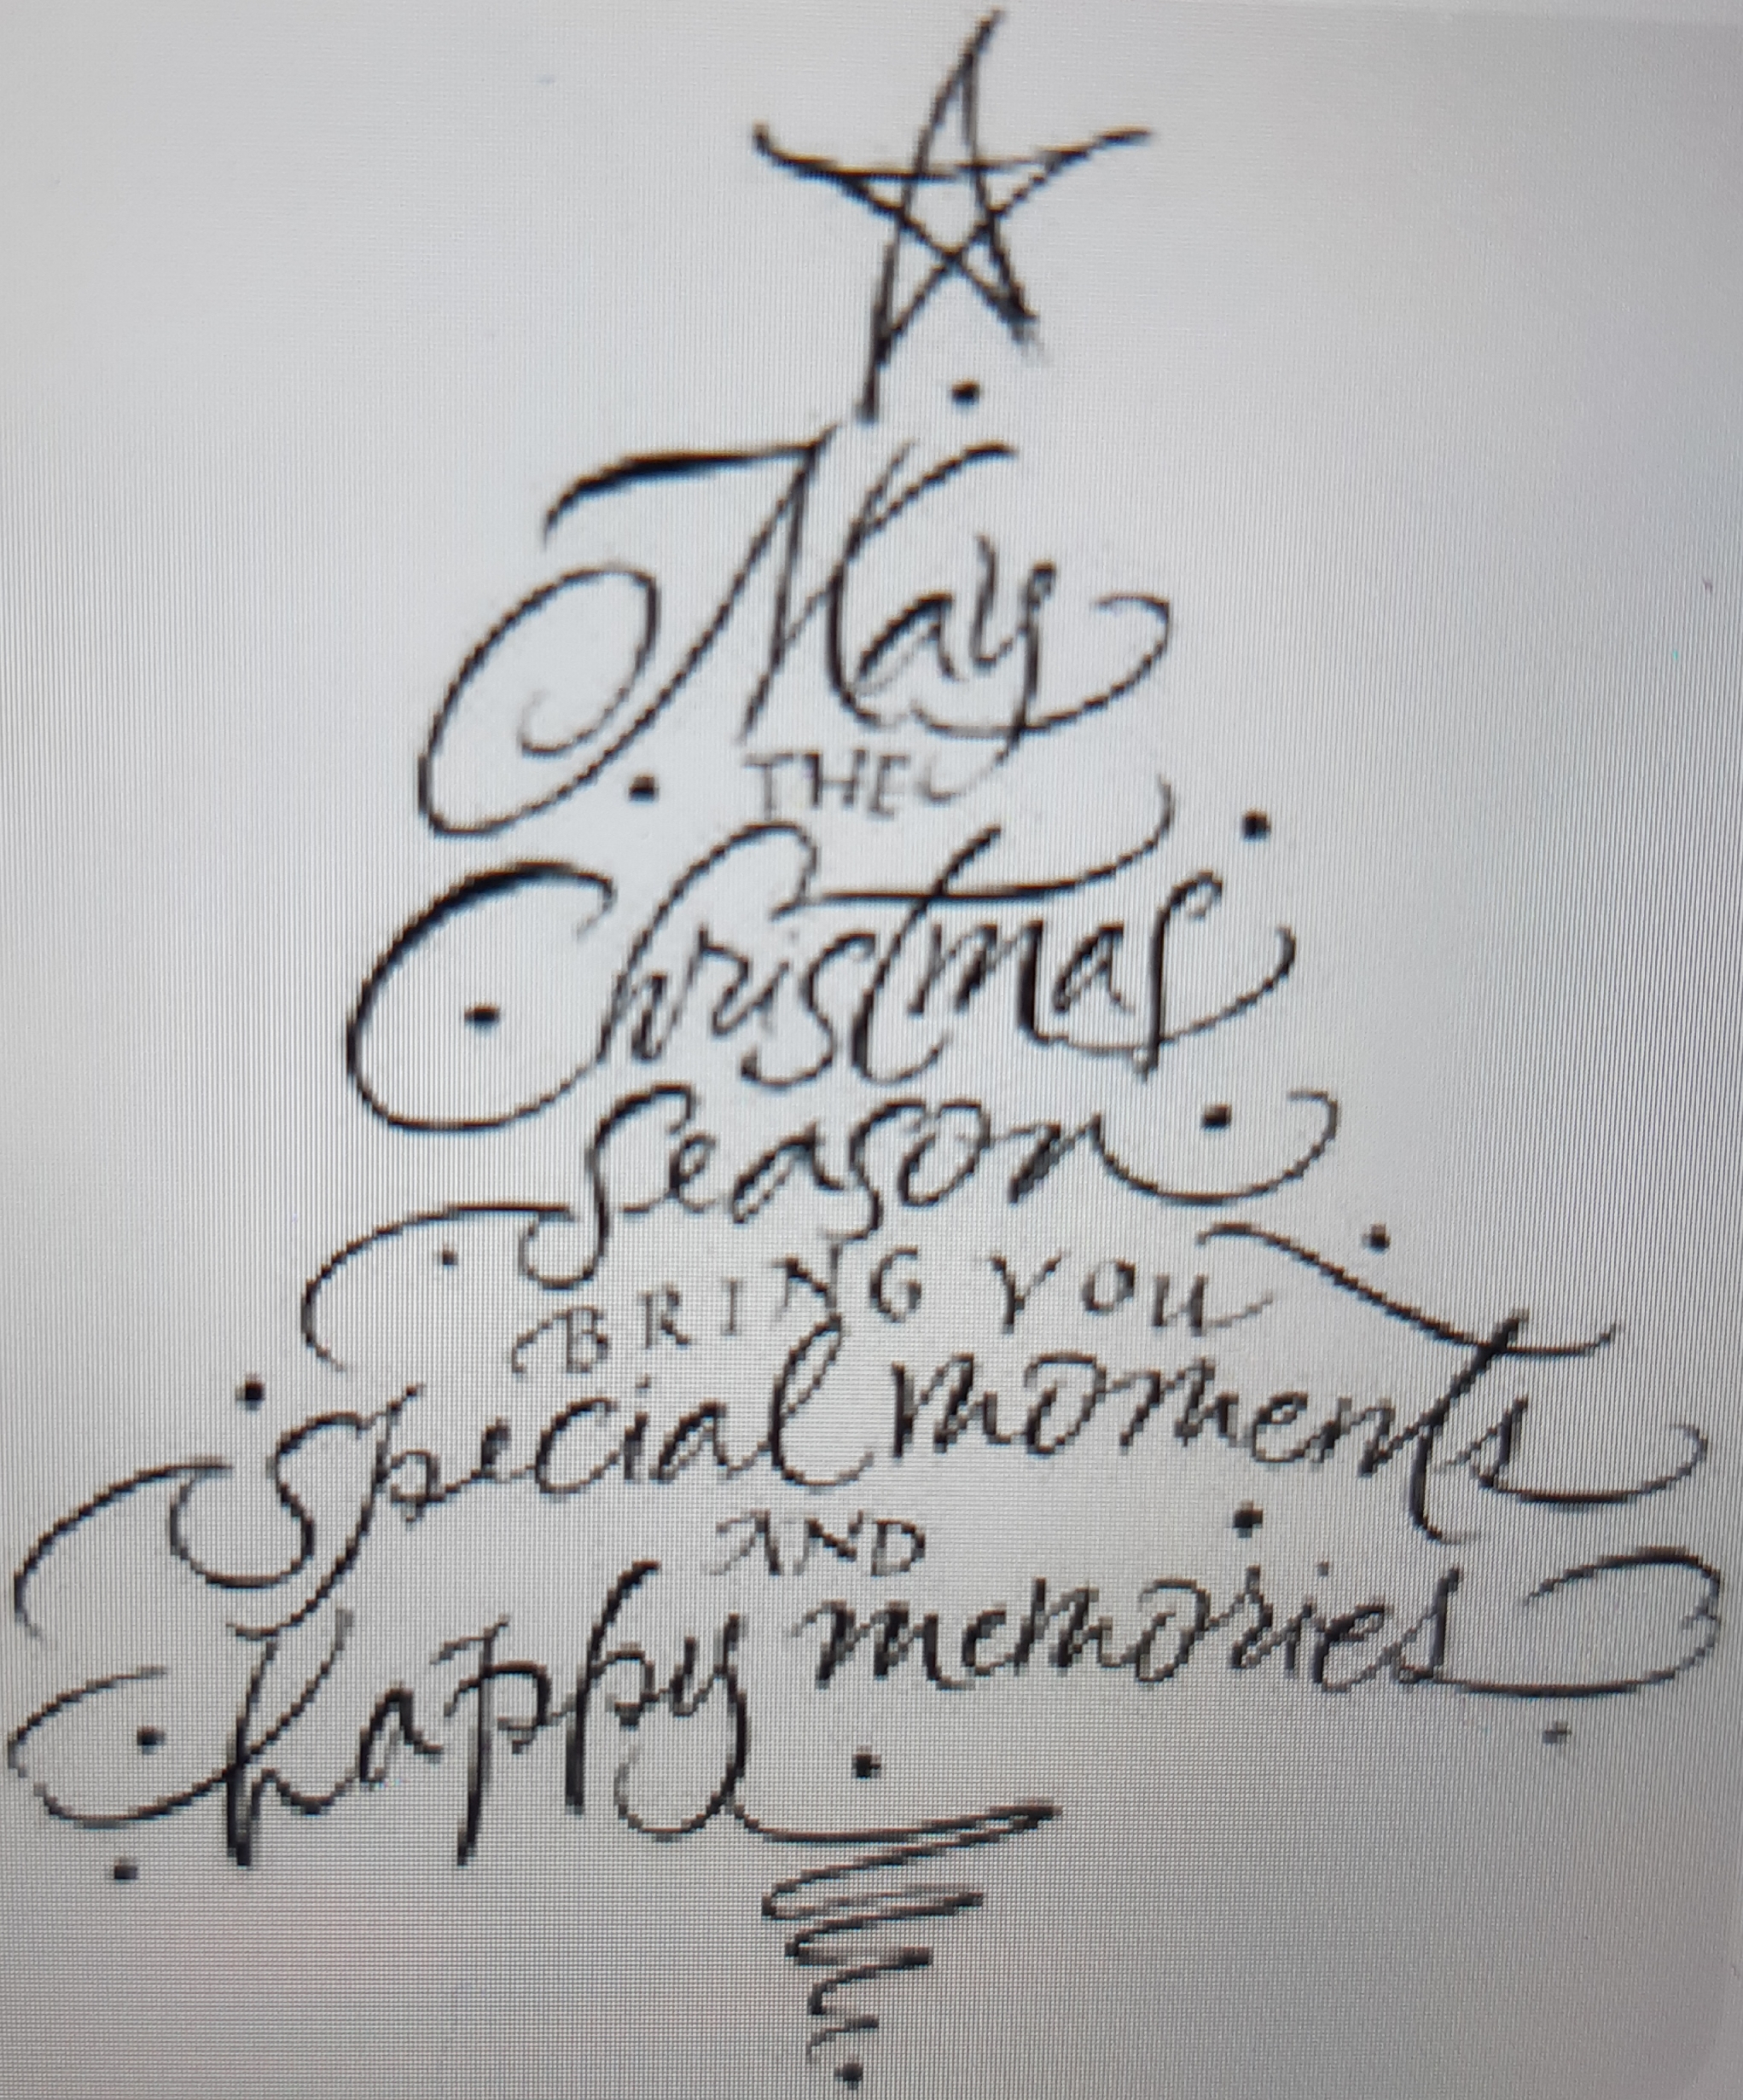 May
THE
Christmas
season
BRING YOU
special moments
AND
happy memories